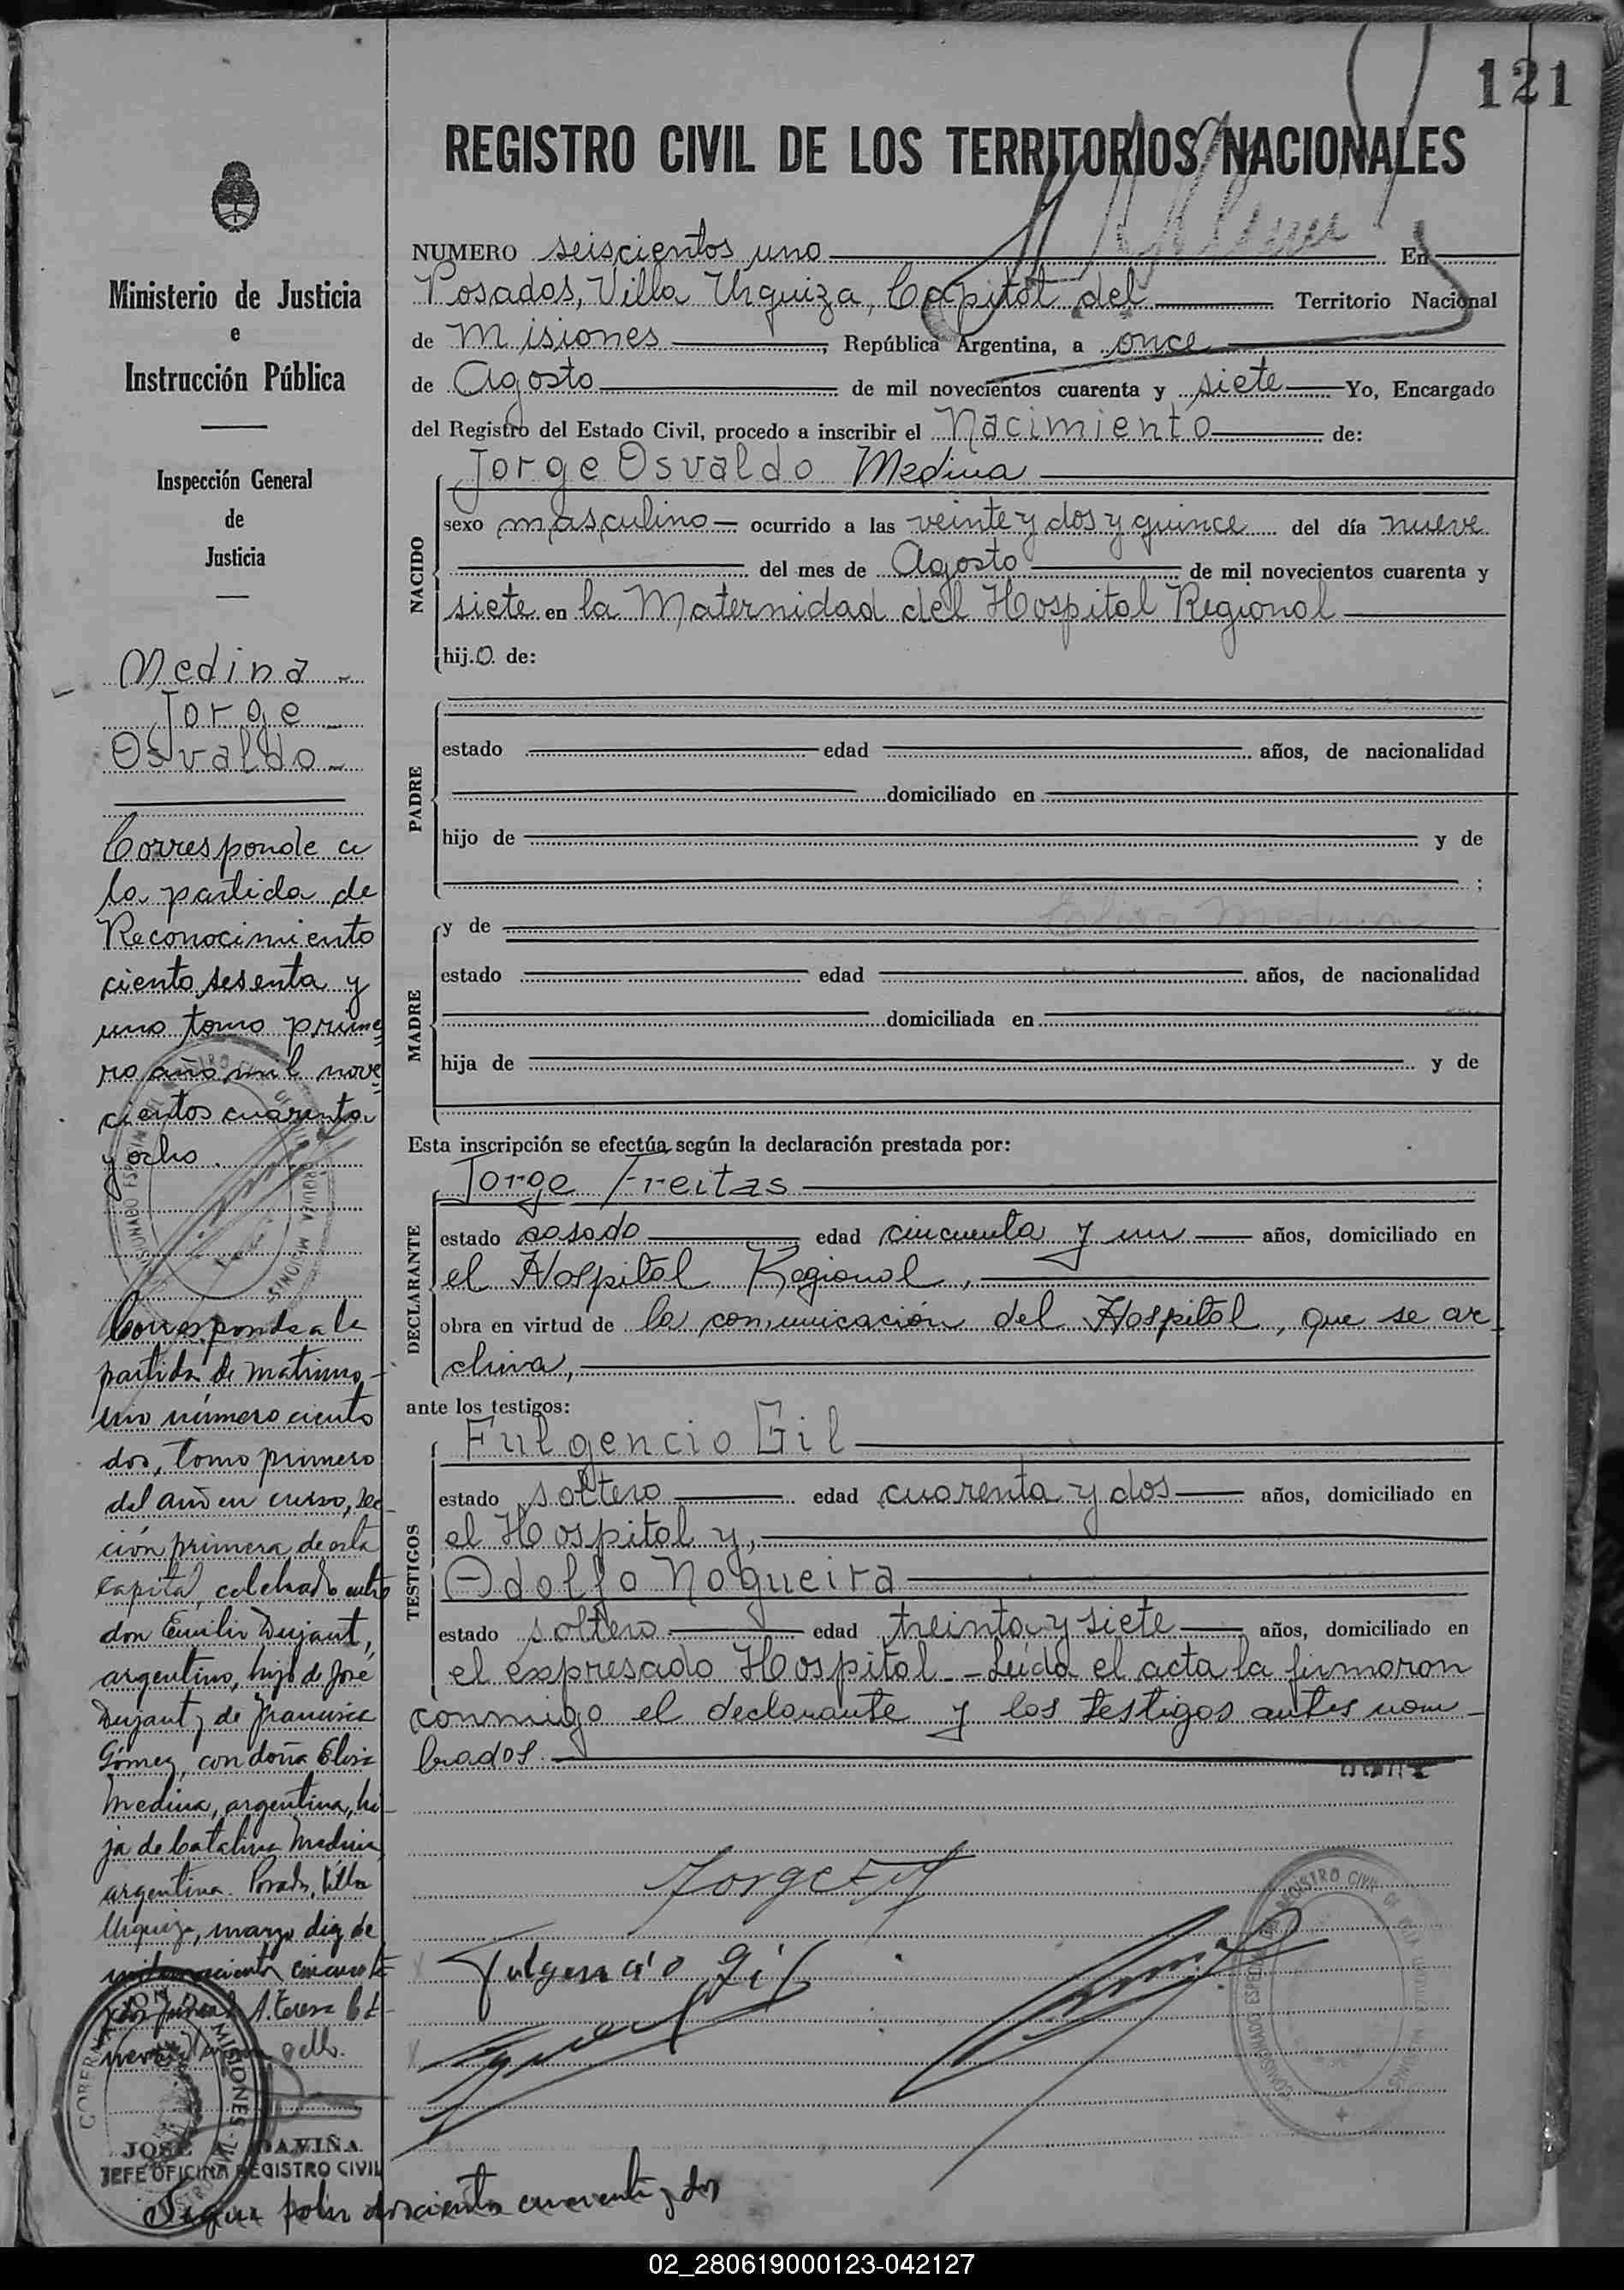 121
REGISTRO CIVIL DE LOS TERRITORIOS NACIONALES
NUMERO seiscientos uno En
Posadas, Villa Urquiza, Capital del Territorio Nacional
de Misiones, República Argentina, a once
de Agosto de mil novecientos cuarenta y siete Yo, Encargado
del Registro del Estado Civil, procedo a inscribir el Nacimiento de:
NACIDO
Jorge Osvaldo Medina
sexo masculino ocurrido a las veinte y dos y quince del día nueve
del mes de Agosto de mil novecientos cuarenta y
siete en la Maternidad del Hospital Regional
hijo de:
PADRE
estado edad años, de nacionalidad
domiciliado en
hijo de y de
;
MADRE
y de
estado edad años, de nacionalidad
domiciliada en
hija de y de
Esta inscripción se efectúa según la declaración prestada por:
DECLARANTE
Jorge Freitas
estado casado edad cincuenta y un años, domiciliado en
el Hospital Regional,
obra en virtud de la comunicación del Hospital, que se ar
chiva,
ante los testigos:
TESTIGOS
Fulgencio Gil
estado soltero edad cuarenta y dos años, domiciliado en
el Hospital y,
Adolfo Nogueira
estado soltero edad treinta y siete años, domiciliado en
el expresado Hospital - Leída el acta la firmaron
conmigo el declarante y los testigos antes nom-
brados.
Fulgencio Gil
Ministerio de Justicia
e
Instrucción Pública
Inspección General
de
Justicia
Medina
Jorge
Osvaldo
Corresponde a
la partida de
Reconocimiento
ciento sesenta y
uno tomo prime
ro año mil nove
cientos cuarenta
y ocho.
Corresponde a la
partida de matrimo-
nio número ciento
dos, tomo primero
del año en curso, sec-
ción primera de esta
Capital, celebrado entre
don Emilio Dujant,
argentino, hijo de José
Dujant y de Francisca
Gómez, con doña Elisa
Medina, argentina, hi-
ja de Catalina Medina
argentina. Posadas, Villa
Urquiza, marzo diez de
mil novecientos cincuenta
GOBERNACION DE MISIONES
JOSE A. DAVIÑA
JEFE OFICINA REGISTRO CIVIL
Sigue folio doscientos cuarenta y dos
02_280619000123-042127